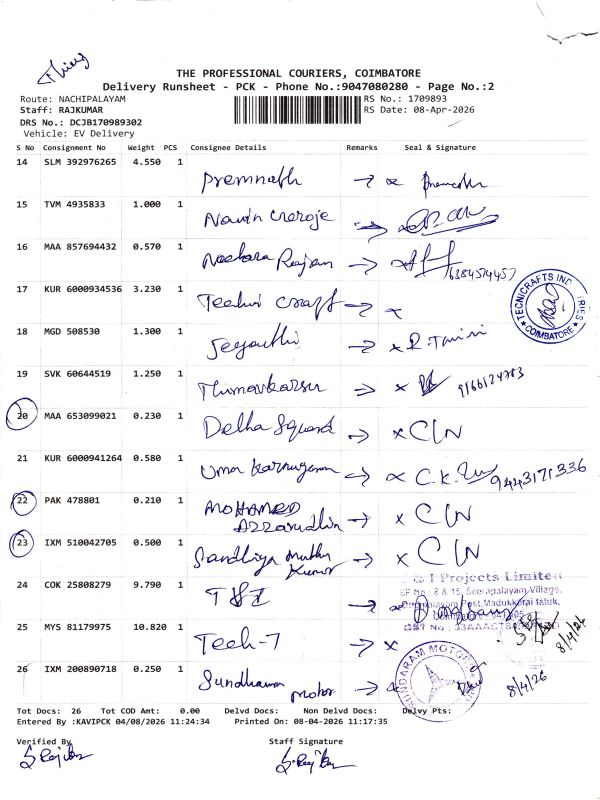 THE PROFESSIONAL COURIERS, COIMBATORE
Delivery Runsheet - PCK - Phone No.:9047080280 - Page No.:2
Route: NACHIPALAYAM
RS No.: 1709893
Staff: RAJKUMAR
RS Date: 08-Apr-2026
DRS No.: DCJB170989302
Vehicle: EV Delivery
S No Consignment No Weight PCS Consignee Details Remarks Seal & Signature
14 SLM 392976265 4.550 1 Premnath
15 TVM 4935833 1.000 1 Navin
16 MAA 857694432 0.570 1 Rajan 6384574457
17 KUR 6000934536 3.230 1 Techni craft x
TECNICRAFTS INDUSTRIES COIMBATORE
18 MGD 508530 1.300 1 x
19 SVK 60644519 1.250 1 x
20 MAA 653099021 0.230 1 Delha x C/N
21 KUR 6000941264 0.580 1 Uma C.K. 9443171336
22 PAK 478801 0.210 1 MOHAMED Azzarudhin x C/N
23 IXM 510042705 0.500 1 Sandhiya Muthu Kumar x C/N
24 COK 25808279 9.790 1 T & I
& I Projects Limited
SF No : 8 & 15, Seerapalayam Village,
Post, Madukkarai taluk,
25 MYS 81179975 10.820 1 Tech-7 x
GST No : 8/4/26
26 IXM 200890718 0.250 1 Sundharam motor 8/4/26
SUNDARAM MOTORS
Tot Docs: 26 Tot COD Amt: 0.00 Delvd Docs: Non Delvd Docs: Delvy Pts:
Entered By :KAVIPCK 04/08/2026 11:24:34 Printed On: 08-04-2026 11:17:35
Verified By Staff Signature
S. Rajkumar S. Rajkumar